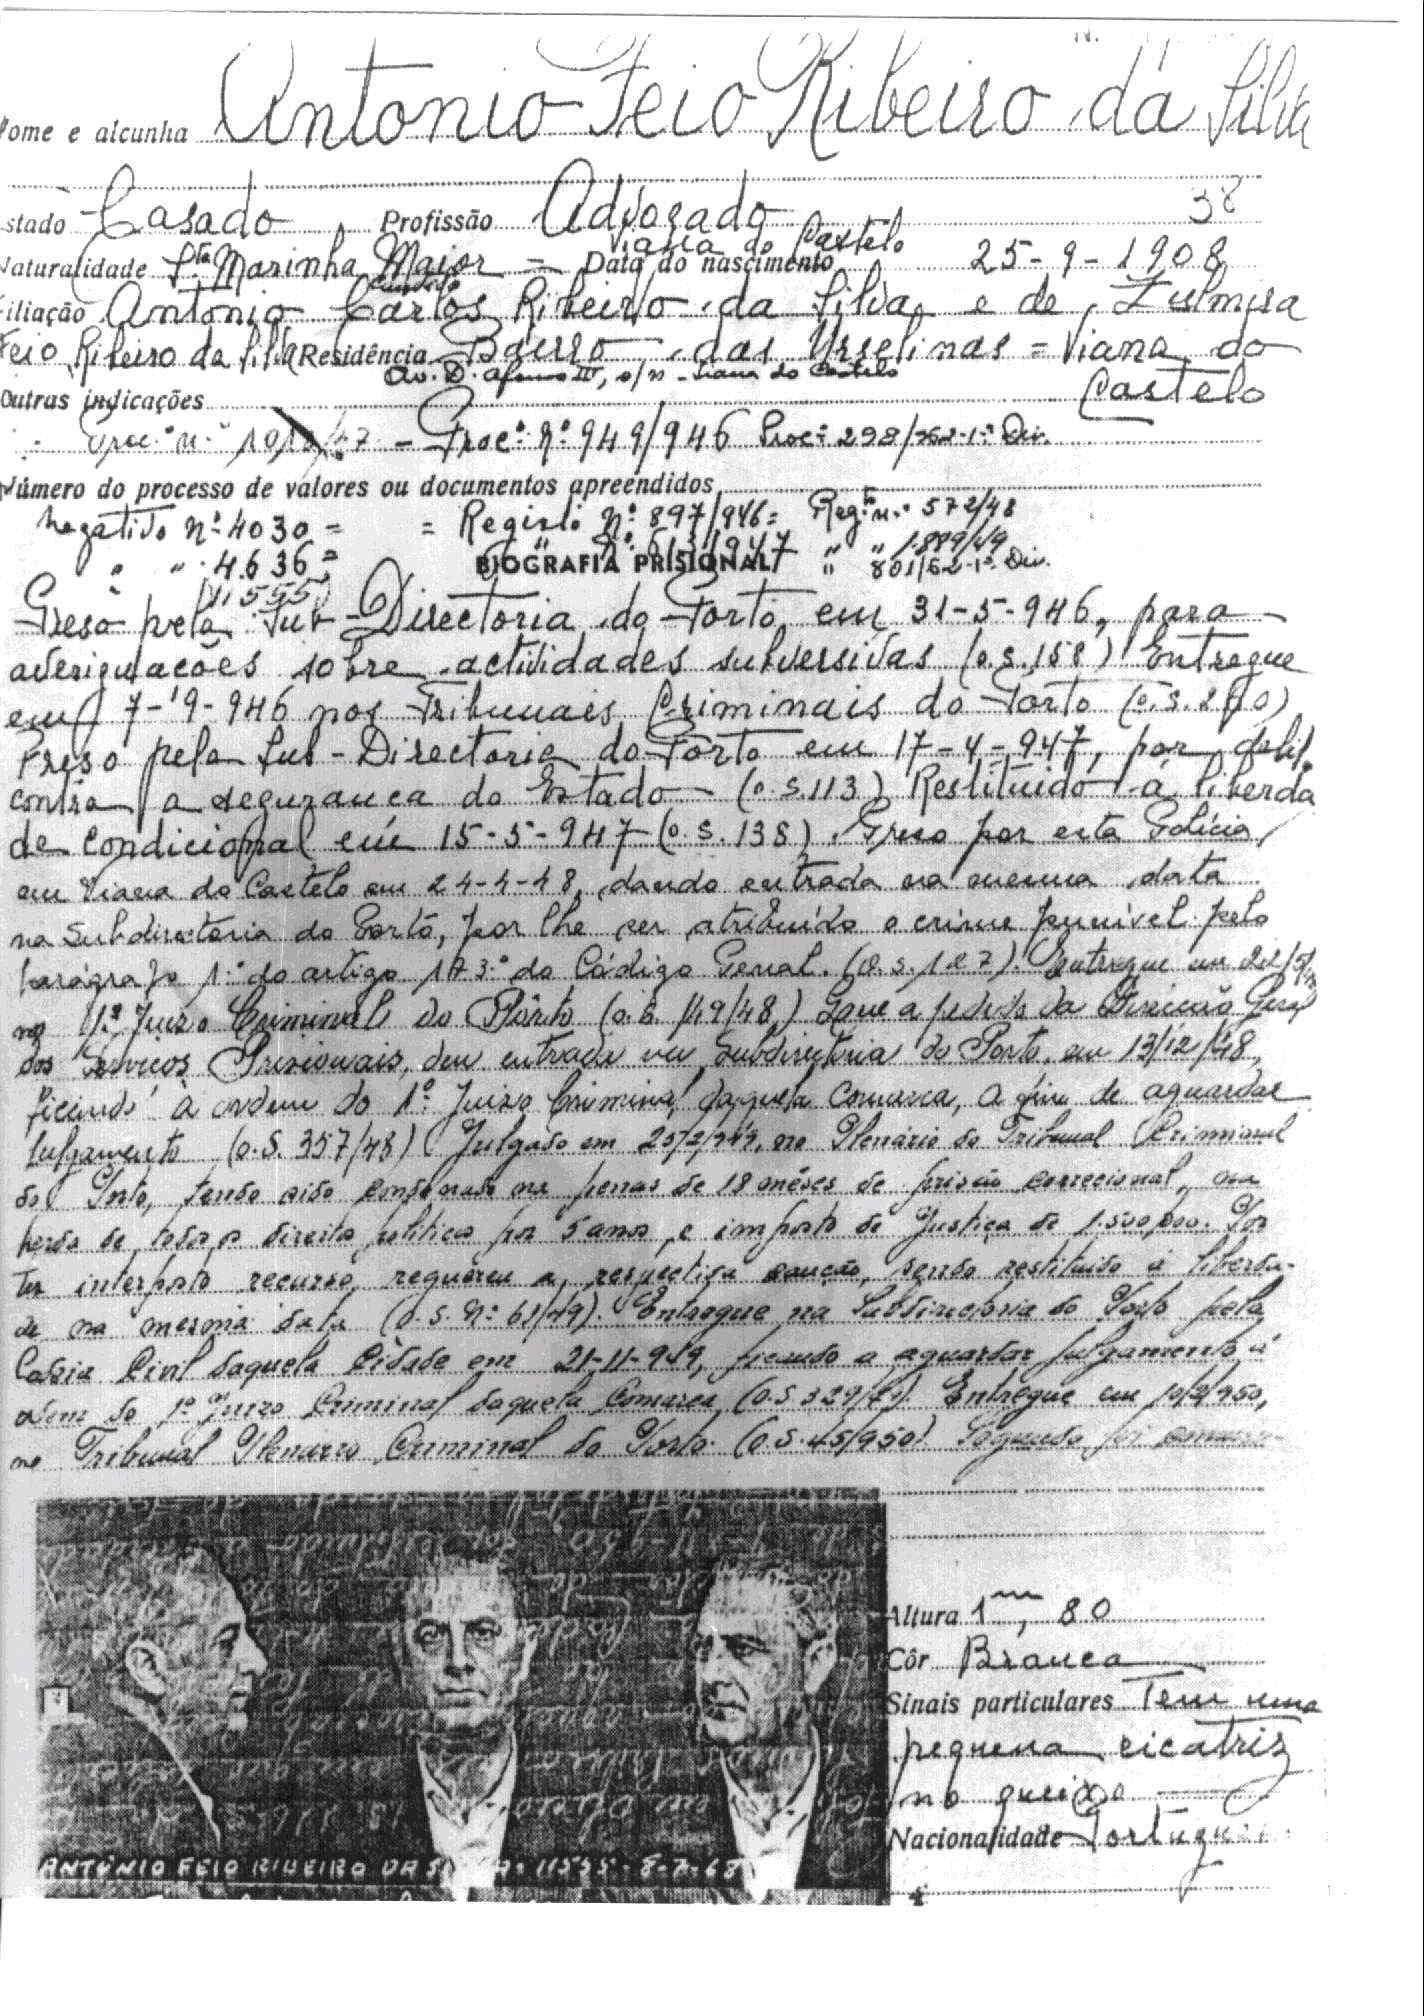 Nome e alcunha Antonio Feio Ribeiro da Silva
38
Estado Casado Profissão Advogado
Viana do Castelo
Naturalidade Stª Marinha Maior = Data do nascimento 25-9-1908
Filiação Antonio Carlos Ribeiro da Silva e de Zulmira
Feio Ribeiro da Silva Residência Bairro das Urselinas = Viana do
Castelo
Av. D. Afonso III, s/n - Viana do Castelo
Outras indicações
Proc.º n.º - Proc.º Nº 949/946 Proc.º 298/962-1.ª Div.
Número do processo de valores ou documentos apreendidos
Negativo Nº 4030 = = Registo Nº 897/946= Reg.to n.º 572/48
" " 4.636= " " 1.889/49
(11.555) " " 801/62-1ª Div.
BIOGRAFIA PRISIONAL
Preso pela Sub-Directoria do Porto em 31-5-946, para
averiguações sobre actividades subversivas (o.s.158) Entregue
em 7-9-946 nos Tribunais Criminais do Porto
Preso pela Sub-Directoria do Porto em 17-4-947, por delit.
contra a segurança do Estado (o.s.113) Restituido á liberda
de condicional em 15-5-947 (o.s.138). Preso por esta Policia,
em Viana do Castelo em 24-4-48, dando entrada na mesma data
na Subdirectoria do Porto, por lhe ser atribuido o crime punivel pelo
parágrafo 1.º do artigo 173.º do Código Penal. (O.s.127). Entregue em
no 1º Juizo Criminal do Pôrto (o.s. 149/48) Que a pedido da Direcção Geral
dos Serviços Prisionais, deu entrada na Subdirectoria do Porto, em 13/12/48,
ficando à ordem do 1º. Juizo Criminal daquela comarca, a fim de aguardar
julgamento (o.s. 357/48) Julgado em no Plenário do Tribunal Criminal
do Porto, tendo sido condenado na penas de 18 mêses de prisão correcional, na
perda de todos os direitos politicos por 5 anos, e imposto de Justiça de 1.500,00. Por
ter interposto recurso, requereu a respectiva caução, sendo restituido à liberda-
de na mesma data (O.S. Nº 61/49). Entregue na Subdirectoria do Porto pela
Cadeia Civil daquela Cidade em 21-11-949, ficando a aguardar julgamento à
ordem do 1º Juizo Criminal daquela Comarca, (O.S 329/49). Entregue em 10/2/950,
no Tribunal Plenario Criminal do Porto. (O.S.45/950)
Altura 1m, 80
Côr Branca
Sinais particulares Tem uma
pequena cicatriz
no queixo
Nacionalidade Portugu
ANTÓNIO FEIO RIBEIRO DA SILVA